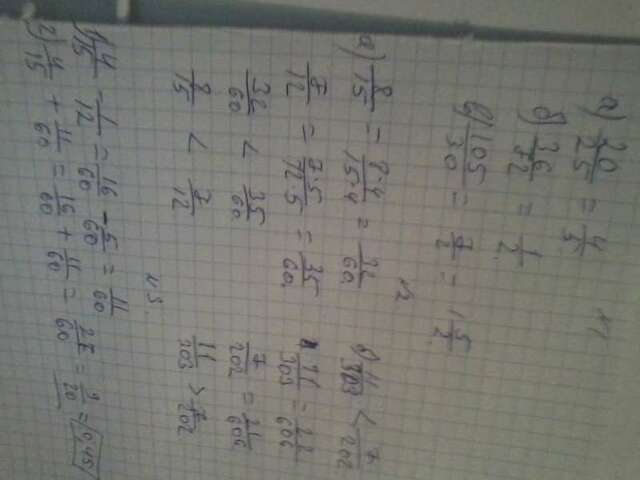 №1
а) 20/25 = 4/5
б) 36/72 = 1/2.
в) 105/30 = 7/2 = 1 5/2.
№2
а) 8/15 = 8·4/15·4 = 32/60.
7/12 = 7·5/12·5 = 35/60.
32/60 < 35/60
8/15 < 7/12
б) 11/303 < 7/202
11/303 = 22/606
7/202 = 21/606
11/303 > 7/202
№3.
1) 4/15 - 1/12 = 16/60 - 5/60 = 11/60
2) 4/15 + 11/60 = 16/60 + 11/60 = 27/60 = 9/20 = 0,45